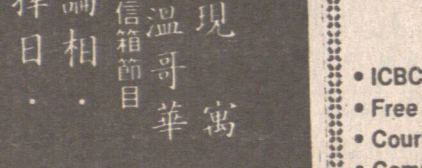 現寓
溫哥華
信箱節目
論相．
擇日．
• ICBC
• Free
• Cour